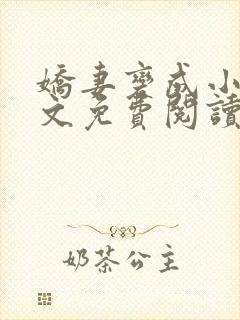 嬌妻變成小
文免費閱讀
奶茶公主